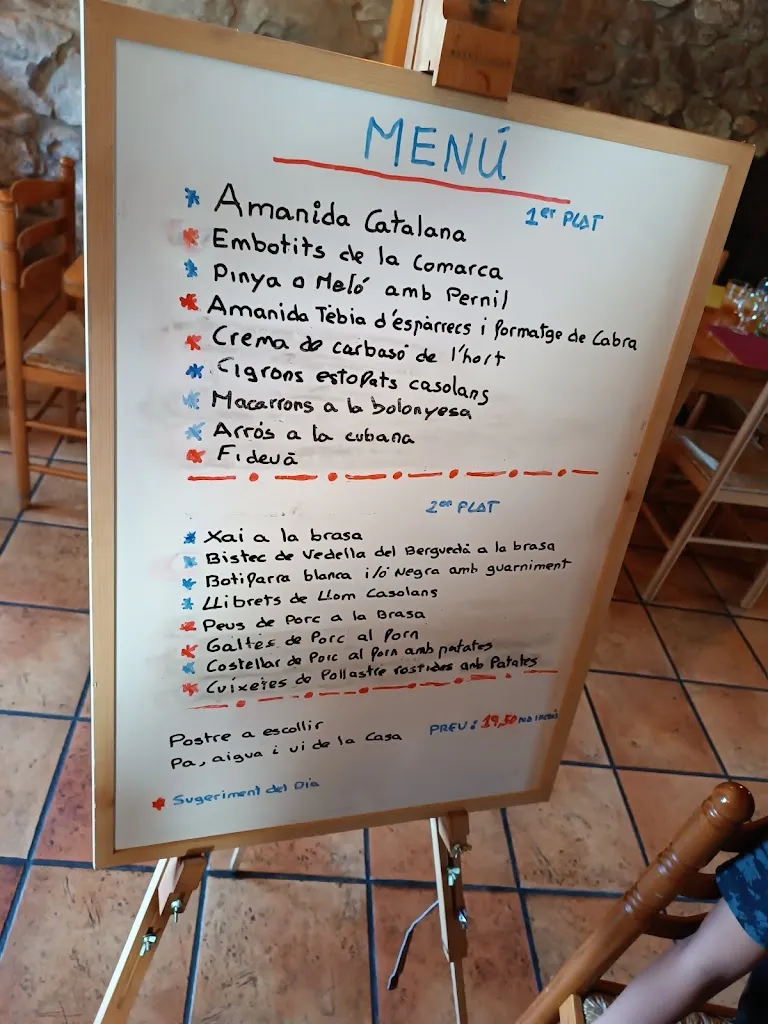 MENÚ
1er PLAT
* Amanida Catalana
* Embotits de la Comarca
* Pinya o Meló amb Pernil
* Amanida Tèbia d'espàrrecs i formatge de Cabra
* Crema de carbasó de l'hort
* Cigrons estofats casolans
* Macarrons a la bolonyesa
* Arrós a la cubana
* Fideuà
2on PLAT
* Xai a la brasa
* Bistec de Vedella del Berguedà a la brasa
* Botifarra blanca i/o Negra amb guarniment
* Llibrets de Llom Casolans
* Peus de Porc a la Brasa
* Galtes de Porc al Forn
* Costellar de Porc al Forn amb patates
* Cuixetes de Pollastre rostides amb Patates
Postre a escollir
Pa, aigua i vi de la Casa
PREU: 19,50
* Sugeriment del Dia